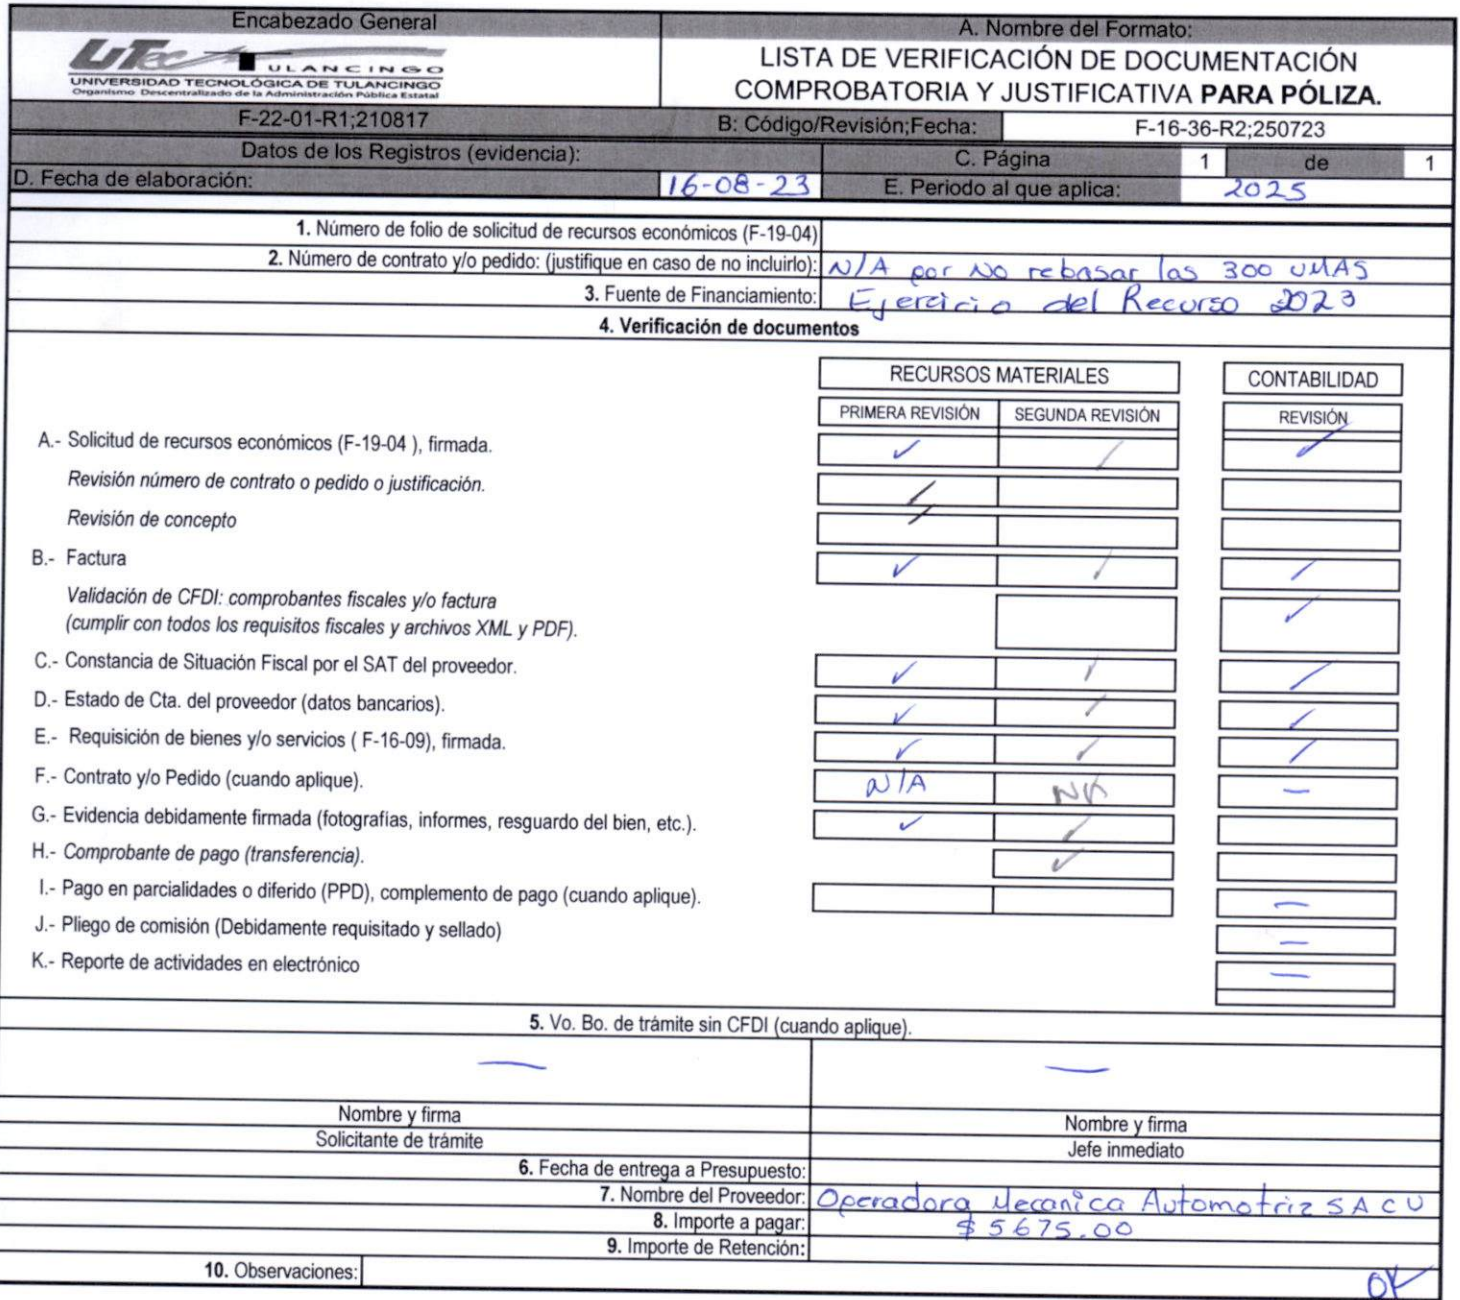 Encabezado General
A. Nombre del Formato:
UTec TULANCINGO
UNIVERSIDAD TECNOLÓGICA DE TULANCINGO
Organismo Descentralizado de la Administración Pública Estatal
LISTA DE VERIFICACIÓN DE DOCUMENTACIÓN
COMPROBATORIA Y JUSTIFICATIVA PARA PÓLIZA.
F-22-01-R1;210817
B: Código/Revisión;Fecha: F-16-36-R2;250723
Datos de los Registros (evidencia):
C. Página 1 de 1
D. Fecha de elaboración: 16-08-23
E. Periodo al que aplica: 2025
1. Número de folio de solicitud de recursos económicos (F-19-04)
2. Número de contrato y/o pedido: (justifique en caso de no incluirlo): N/A por No rebasar las 300 UMAS
3. Fuente de Financiamiento: Ejercicio del Recurso 2023
4. Verificación de documentos
RECURSOS MATERIALES CONTABILIDAD
PRIMERA REVISIÓN SEGUNDA REVISIÓN REVISIÓN
A.- Solicitud de recursos económicos (F-19-04 ), firmada. ✓ ✓ ✓
Revisión número de contrato o pedido o justificación. ✓
Revisión de concepto
B.- Factura ✓ ✓ ✓
Validación de CFDI: comprobantes fiscales y/o factura
(cumplir con todos los requisitos fiscales y archivos XML y PDF). ✓
C.- Constancia de Situación Fiscal por el SAT del proveedor. ✓ ✓ ✓
D.- Estado de Cta. del proveedor (datos bancarios). ✓ ✓ ✓
E.- Requisición de bienes y/o servicios ( F-16-09), firmada. ✓ ✓ ✓
F.- Contrato y/o Pedido (cuando aplique). N/A NA —
G.- Evidencia debidamente firmada (fotografías, informes, resguardo del bien, etc.). ✓ ✓
H.- Comprobante de pago (transferencia). ✓
I.- Pago en parcialidades o diferido (PPD), complemento de pago (cuando aplique). —
J.- Pliego de comisión (Debidamente requisitado y sellado) —
K.- Reporte de actividades en electrónico —
5. Vo. Bo. de trámite sin CFDI (cuando aplique).
— —
Nombre y firma
Solicitante de trámite
Nombre y firma
Jefe inmediato
6. Fecha de entrega a Presupuesto:
7. Nombre del Proveedor: Operadora Mecanica Automotriz SA CV
8. Importe a pagar: $5675.00
9. Importe de Retención:
10. Observaciones: OK